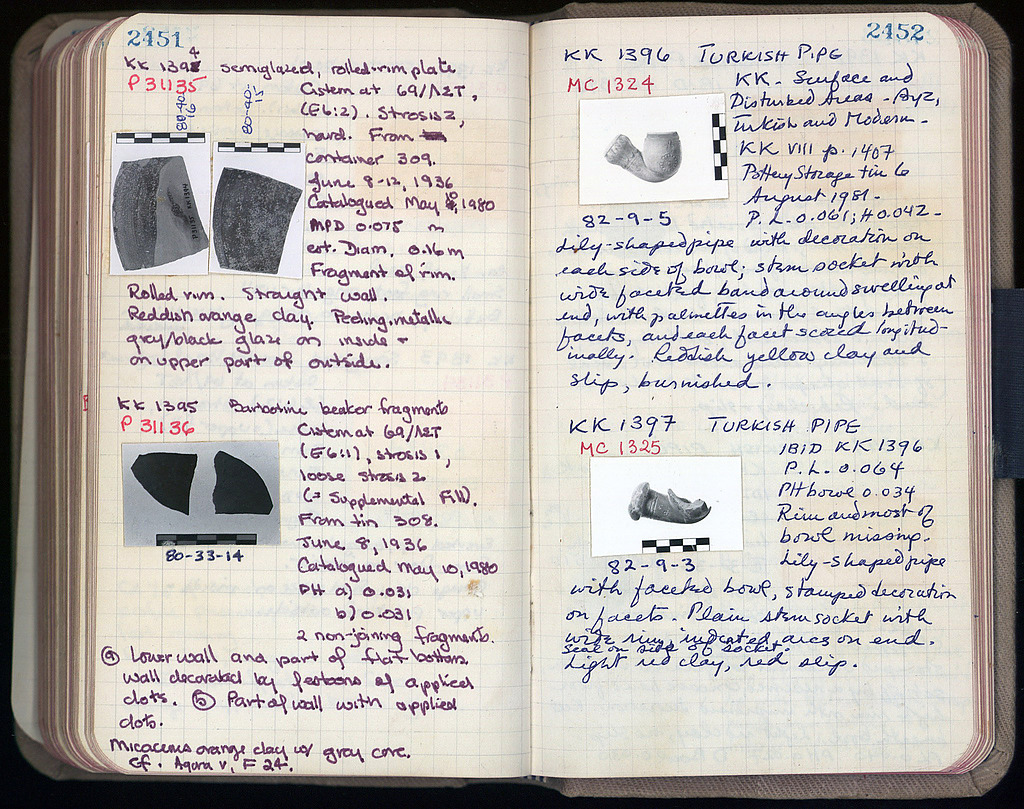 2451
KK 1394
P 31135
semiglazed, rolled-rim plate
80-40-16
80-40-15
Cistern at 69/ΛΣΤ,
(E6:2). Strosis 2,
hard. From
container 309.
June 8-12, 1936
Catalogued May 10, 1980
MPD 0.075 m
est. Diam. 0.16 m
Fragment of rim.
Rolled rim. Straight wall.
Reddish orange clay. Peeling, metallic
gray/black glaze on inside +
on upper part of outside.
KK 1395 Barbotine beaker fragments
P 31136
Cistern at 69/ΛΣΤ
(E6:1), strosis 1,
loose strosis 2
(= Supplemental Fill).
From tin 308.
June 8, 1936
Catalogued May 10, 1980
PH a) 0.031
b) 0.031
2 non-joining fragments.
80-33-14
(a) Lower wall and part of flat bottom
wall decorated by festoons of applied
dots. (b) Part of wall with applied
dots.
Micaceous orange clay w/ gray core.
Cf. Agora V, F 24.
2452
KK 1396 TURKISH PIPE
MC 1324
KK. Surface and
Disturbed Areas - Byz,
Turkish and Modern -
KK VIII p. 1407
Pottery Storage tin 6
August 1981 -
P. L. 0.061; H 0.042 -
82-9-5
Lily-shaped pipe with decoration on
each side of bowl; stem socket with
wide faceted band around swelling at
end, with palmettes in the angles between
facets, and each facet scored longitud-
inally. Reddish yellow clay and
slip, burnished.
KK 1397 TURKISH PIPE
MC 1325
IBID KK 1396
P. L. 0.064
PH bowl 0.034
Rim and most of
bowl missing.
Lily-shaped pipe
82-9-3
with faceted bowl, stamped decoration
on facets. Plain stem socket with
wide rim, indicated arcs on end.
seal on side of socket.
Light red clay, red slip.